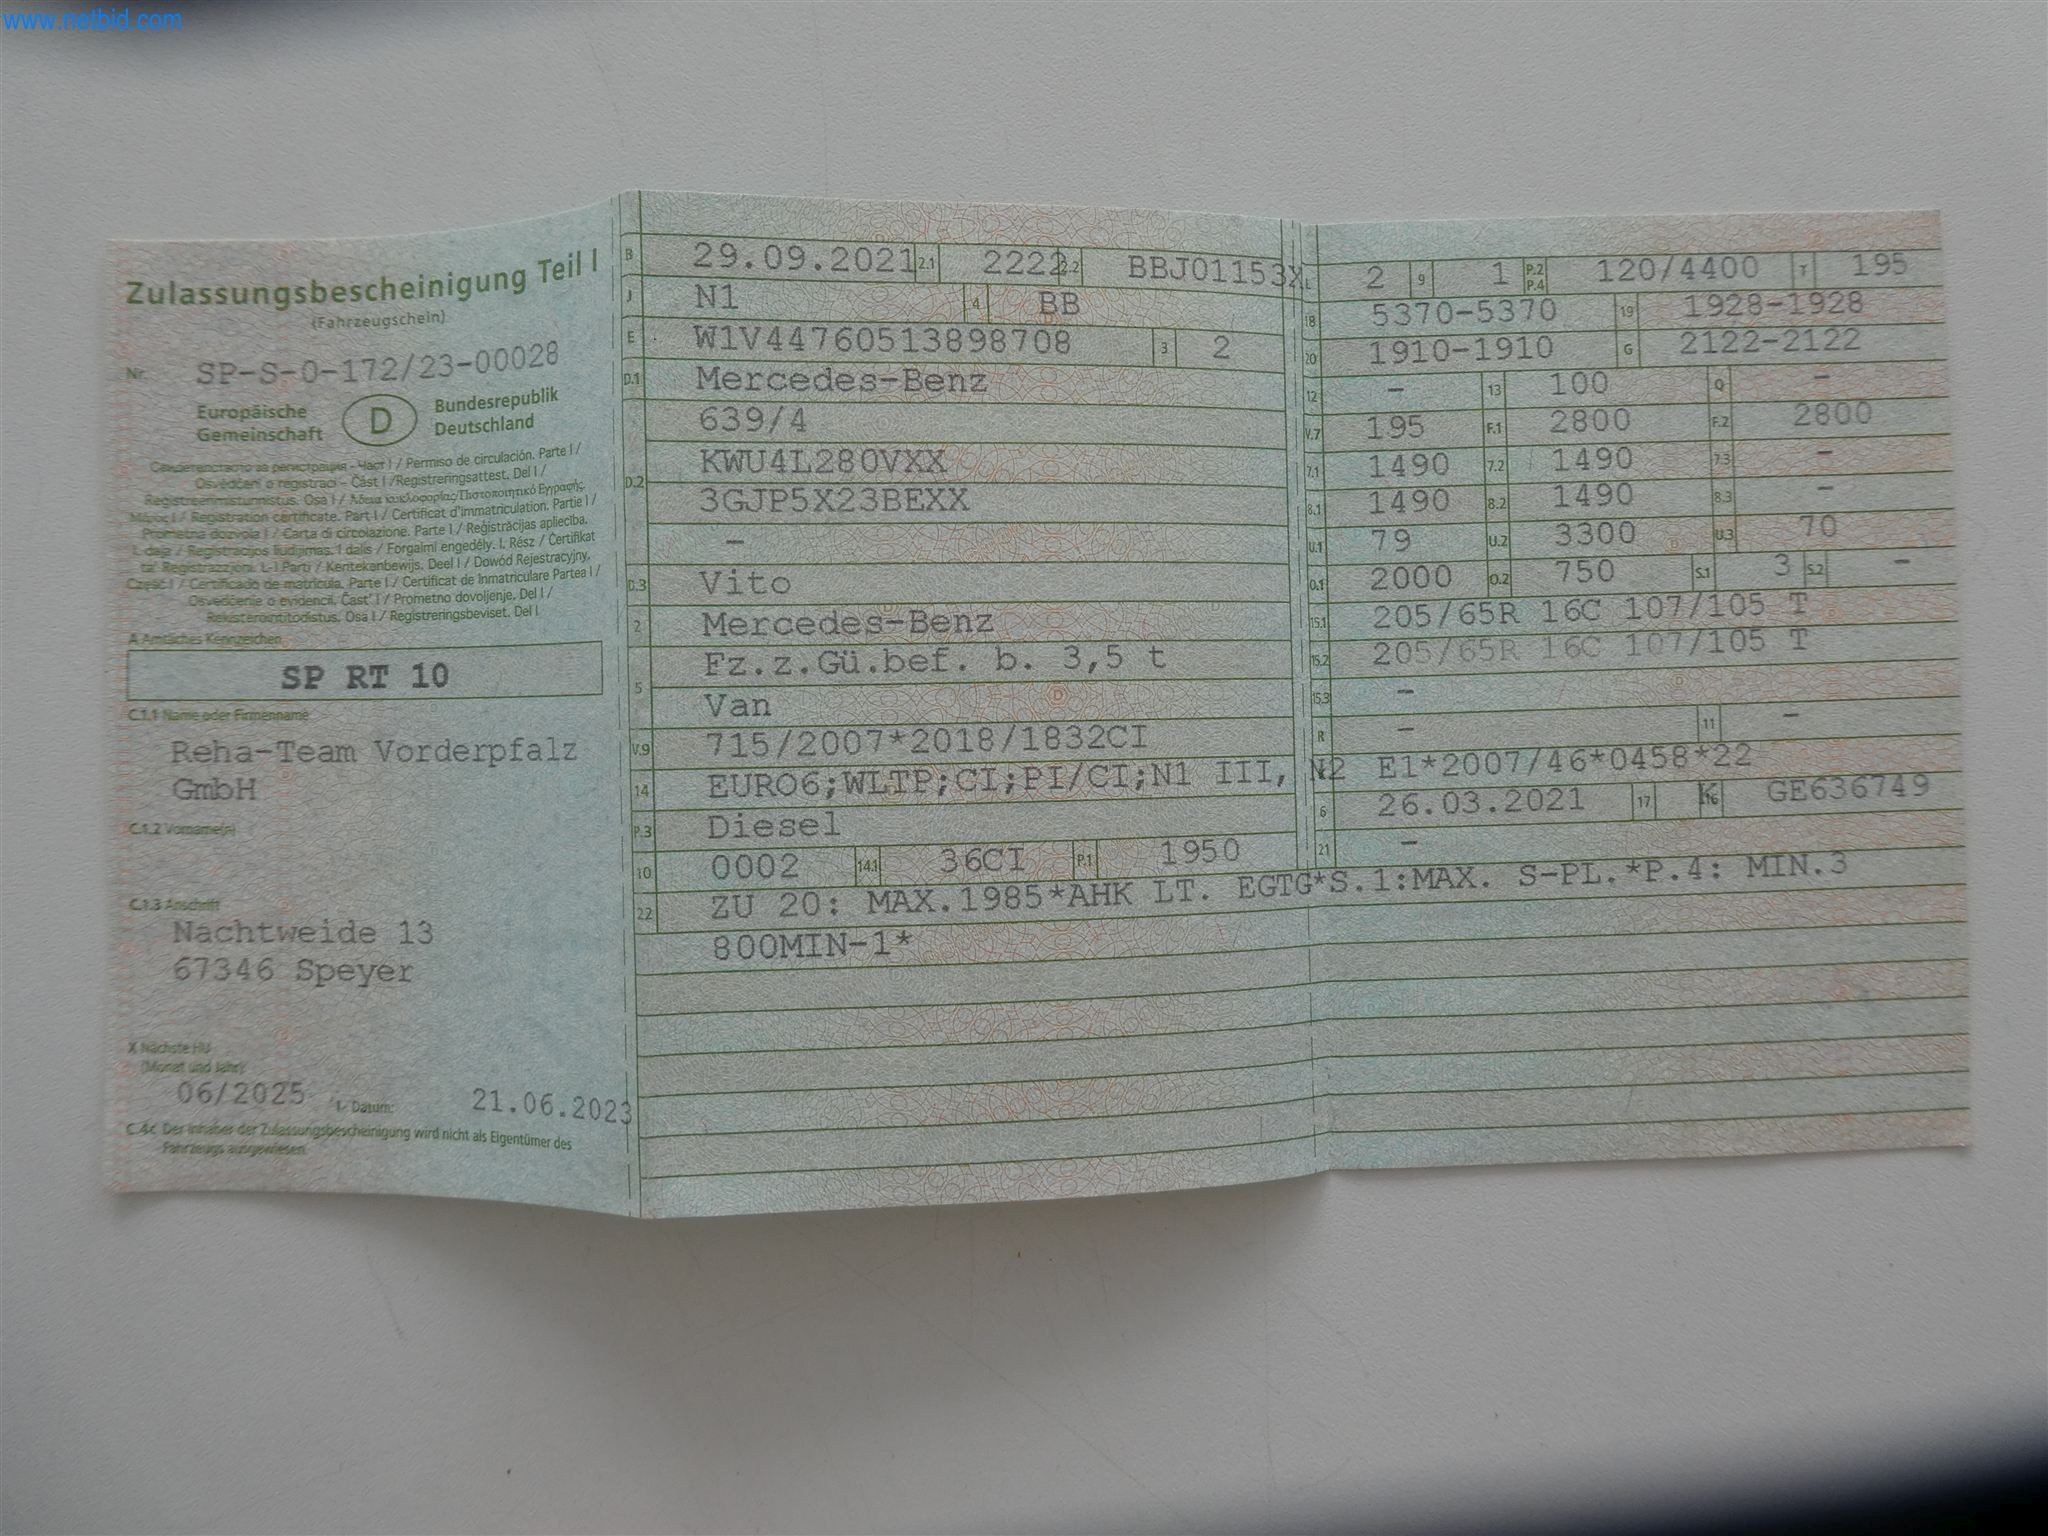 www.netbid.com
Zulassungsbescheinigung Teil I
(Fahrzeugschein)
Nr. SP-S-0-172/23-00028
Europäische Gemeinschaft D Bundesrepublik Deutschland
Свидетелство за регистрация - Част I / Permiso de circulación. Parte I /
Osvědčení o registraci - Část I / Registreringsattest. Del I /
Registreerimistunnistus. Osa I / Άδεια κυκλοφορίας/Πιστοποιητικό Εγγραφής.
Μέρος I / Registration certificate. Part I / Certificat d'immatriculation. Partie I /
Prometna dozvola I / Carta di circolazione. Parte I / Reģistrācijas apliecība.
I. daļa / Registracijos liudijimas. I dalis / Forgalmi engedély. I. Rész / Ċertifikat
ta' Reġistrazzjoni. L-I Parti / Kentekenbewijs. Deel I / Dowód Rejestracyjny.
Część I / Certificado de matrícula. Parte I / Certificat de Inmatriculare Partea I /
Osvedčenie o evidencii. Časť I / Prometno dovoljenje. Del I /
Rekisteröintitodistus. Osa I / Registreringsbeviset. Del I
A Amtliches Kennzeichen
SP RT 10
C.1.1 Name oder Firmenname
Reha-Team Vorderpfalz
GmbH
C.1.2 Vorname(n)
C.1.3 Anschrift
Nachtweide 13
67346 Speyer
X Nächste HU
(Monat und Jahr):
06/2025 I- Datum: 21.06.2023
C.4c Der Inhaber der Zulassungsbescheinigung wird nicht als Eigentümer des
Fahrzeugs ausgewiesen.
B 29.09.2021 2.1 2222 2.2 BBJ01153X
J N1 4 BB
E W1V44760513898708 3 2
D.1 Mercedes-Benz
639/4
D.2 KWU4L280VXX
3GJP5X23BEXX
-
D.3 Vito
2 Mercedes-Benz
5 Fz.z.Gü.bef. b. 3,5 t
Van
V.9 715/2007*2018/1832CI
14 EURO6;WLTP;CI;PI/CI;N1 III, N2
P.3 Diesel
10 0002 14.1 36CI P.1 1950
22 ZU 20: MAX.1985*AHK LT. EGTG*S.1:MAX. S-PL.*P.4: MIN.3
800MIN-1*
L 2 9 1 P.2 P.4 120/4400 T 195
18 5370-5370 19 1928-1928
20 1910-1910 G 2122-2122
12 - 13 100 Q -
V.7 195 F.1 2800 F.2 2800
7.1 1490 7.2 1490 7.3 -
8.1 1490 8.2 1490 8.3 -
U.1 79 U.2 3300 U.3 70
O.1 2000 O.2 750 S.1 3 S.2 -
15.1 205/65R 16C 107/105 T
15.2 205/65R 16C 107/105 T
15.3 -
R - 11 -
E1*2007/46*0458*22
6 26.03.2021 17 K 16 GE636749
21 -